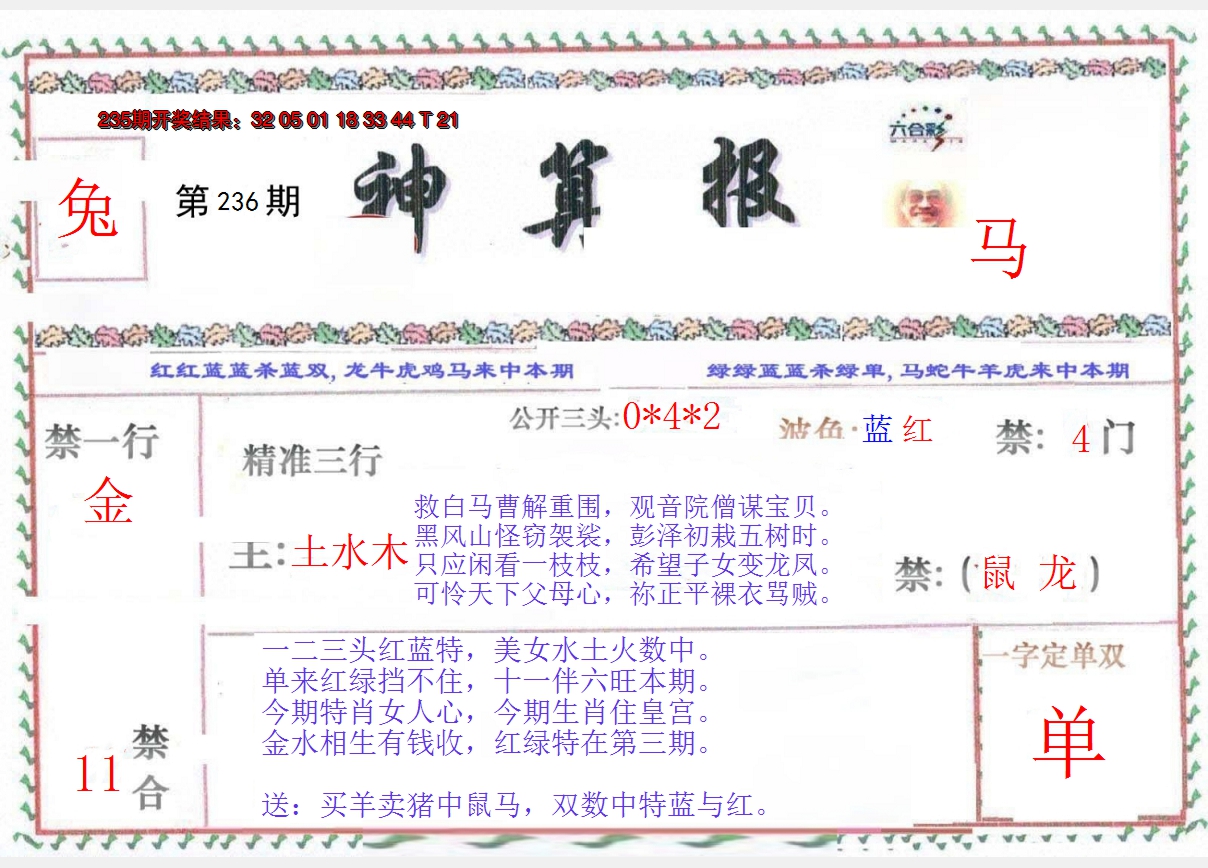 235期开奖结果：32 05 01 18 33 44 T 21
六合彩
兔
第236期
神算报
马
红红蓝蓝杀蓝双,龙牛虎鸡马来中本期
绿绿蓝蓝杀绿单,马蛇牛羊虎来中本期
公开三头:0*4*2
波色:蓝 红
禁: 4门
禁一行
金
精准三行
主:土水木
救白马曹解重围，观音院僧谋宝贝。
黑风山怪窃袈裟，彭泽初栽五树时。
只应闲看一枝枝，希望子女变龙凤。
可怜天下父母心，祢正平裸衣骂贼。
禁:(鼠 龙)
一二三头红蓝特，美女水土火数中。
单来红绿挡不住，十一伴六旺本期。
今期特肖女人心，今期生肖住皇宫。
金水相生有钱收，红绿特在第三期。
送：买羊卖猪中鼠马，双数中特蓝与红。
11
禁合
一字定单双
单